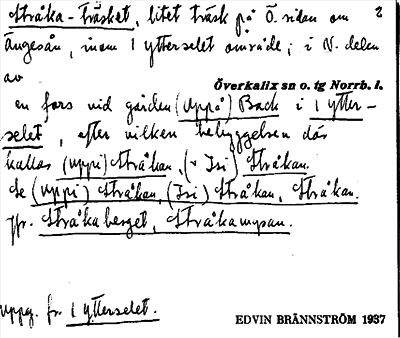 Stråka-träsket, litet träsk på Ö. sidan om 2
Ängesån, inom 1 ytterselet område; i N. delen
av
Överkalix sn o. tg Norrb. l.
en fors vid gården (uppå) Back i 1 ytter-
selet, efter vilken bebyggelsen där
kallas (uppi) Stråkan, (Isi) Stråkan.
Se (uppi) Stråkan, (Isi) Stråkan, Stråkan.
Jfr. Stråkaberget, Stråkamyran.
uppg. fr. 1 ytterselet.
EDVIN BRÄNNSTRÖM 1937